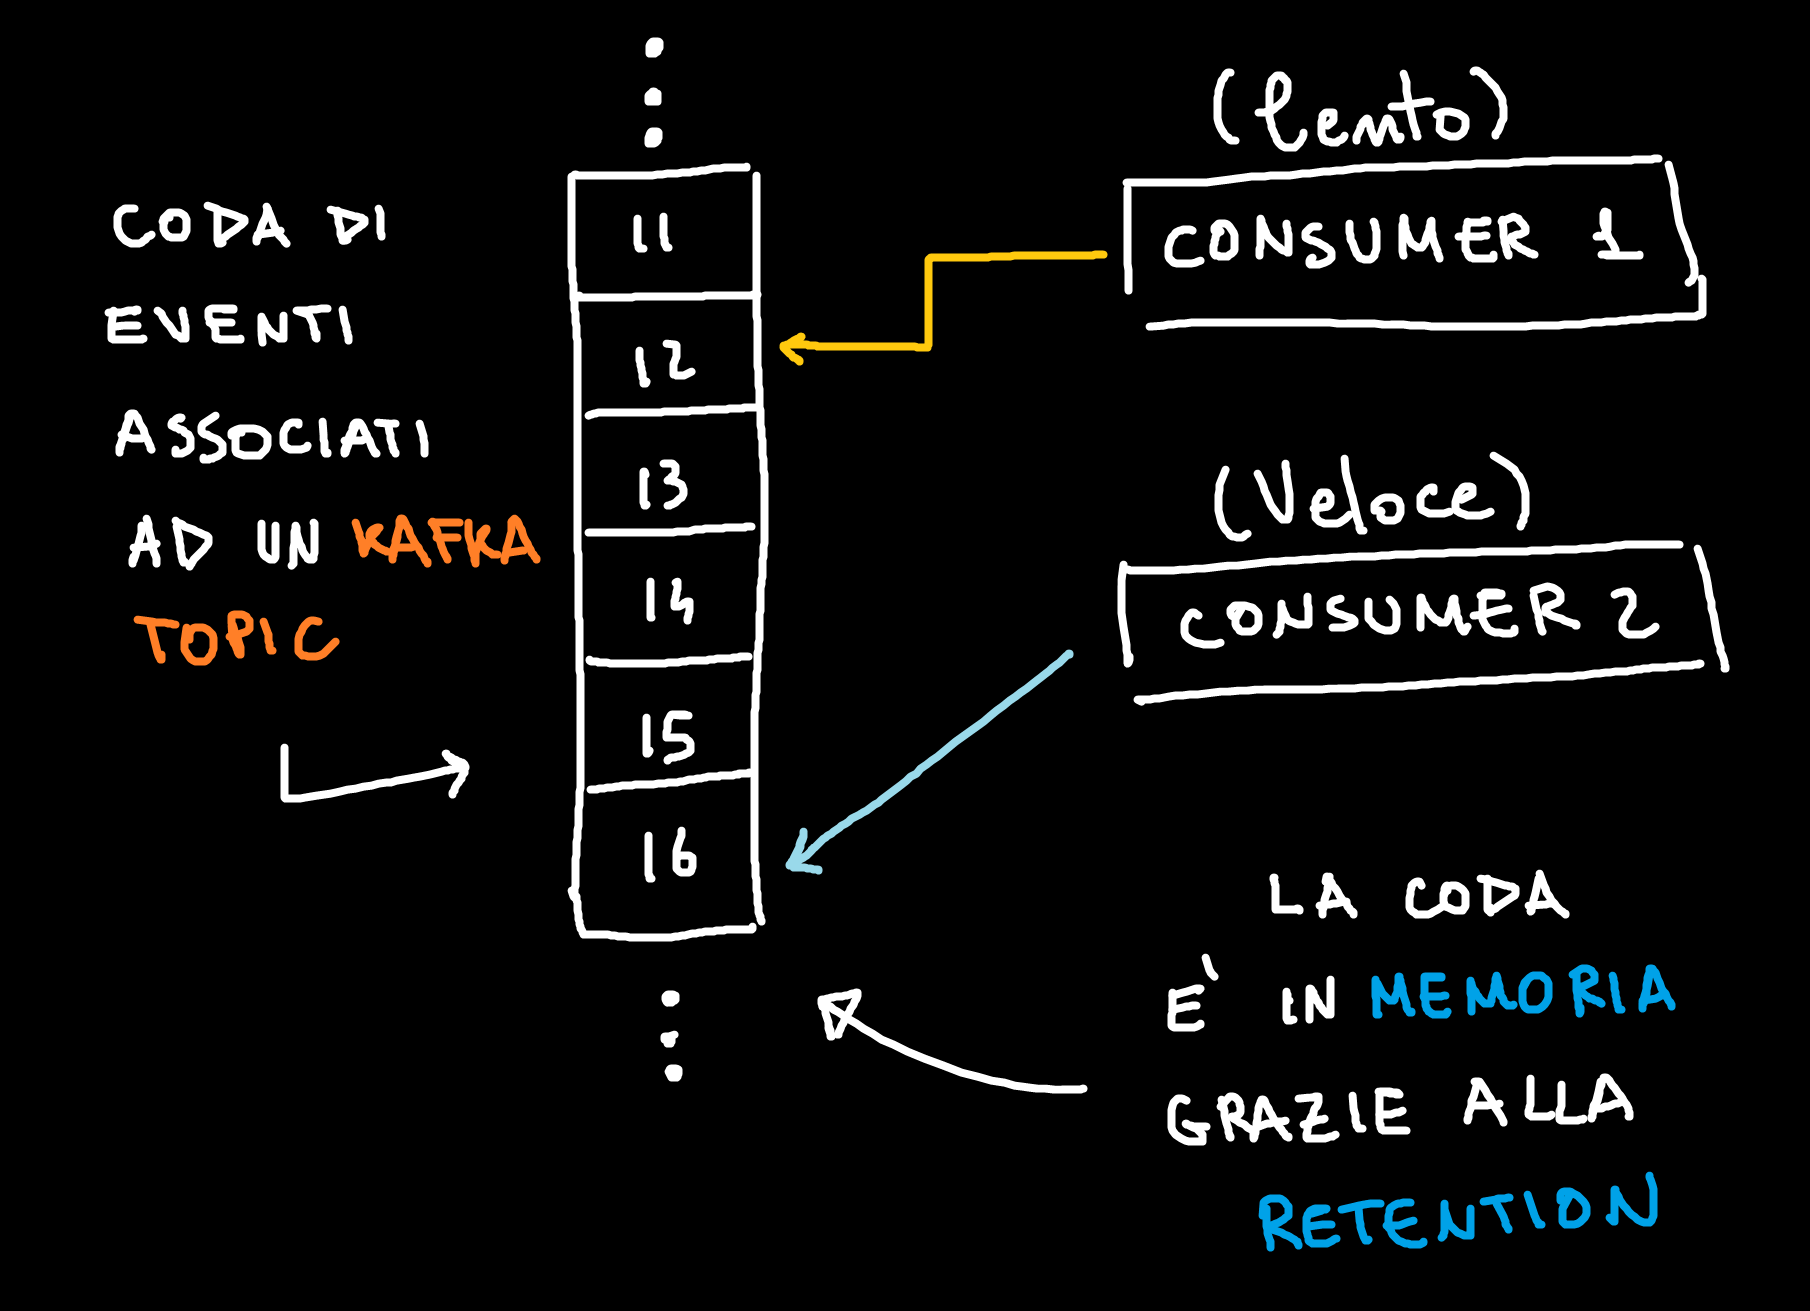 CODA DI
EVENTI
ASSOCIATI
AD UN KAFKA
TOPIC
11
12
13
14
15
16
(lento)
CONSUMER 1
(Veloce)
CONSUMER 2
LA CODA
E' IN MEMORIA
GRAZIE ALLA
RETENTION